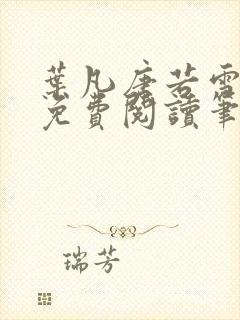 葉凡唐若雪
免費閱讀筆
瑞芳